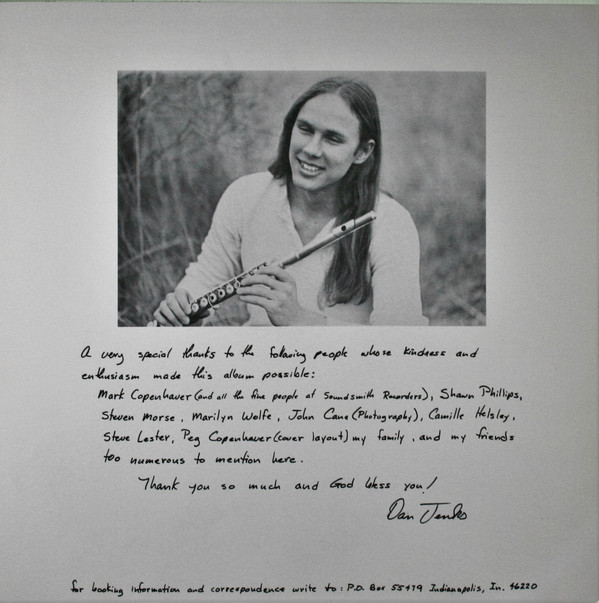 A very special thanks to the following people whose kindness and
enthusiasm made this album possible:
Mark Copenhaver (and all the fine people at Soundsmith Recorders), Shawn Phillips,
Steven Morse, Marilyn Wolfe, John Cane (Photography), Camille Helsley,
Steve Lester, Peg Copenhaver (cover layout) my family, and my friends
too numerous to mention here.
Thank you so much and God bless you!
Dan
for booking information and correspondence write to: P.O. Box 55479 Indianapolis, In. 46220